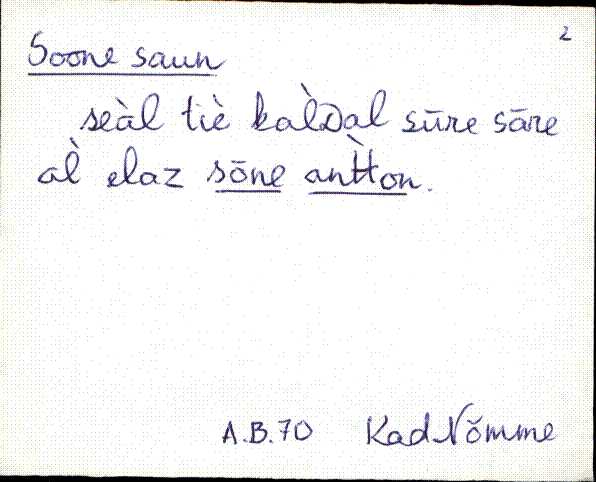 2
Soone saun
seàl tiè kal̀Dal sūre sāre
al̀ elaz sōne ant̀ton.
A.B.70 Kad Nõmme